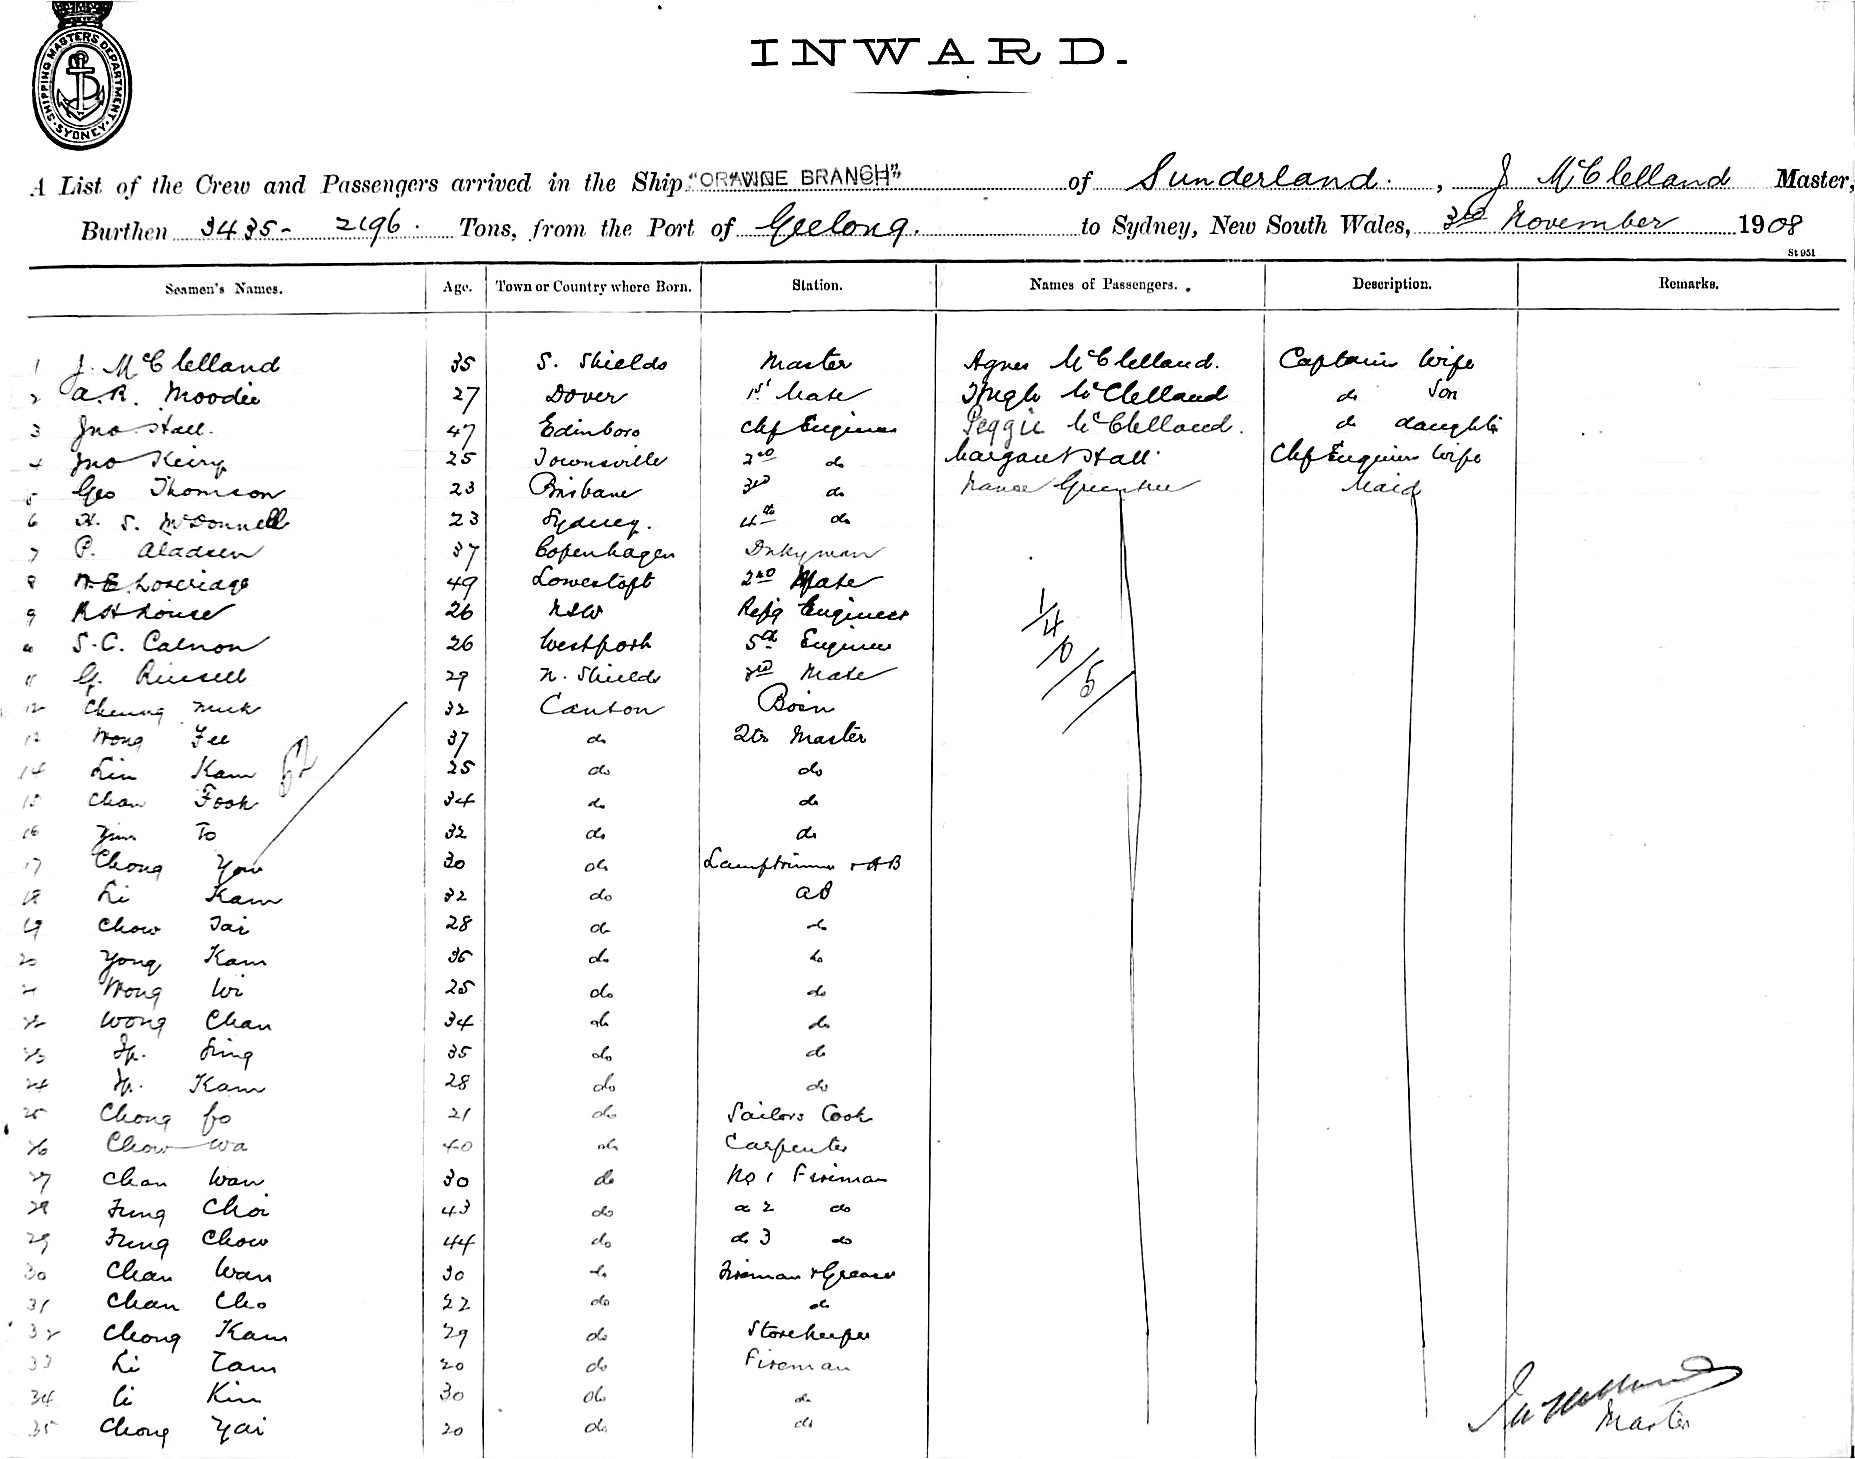 SHIPPING MASTERS DEPARTMENT
SYDNEY
INWARD.
A List of the Crew and Passengers arrived in the Ship "ORANGE BRANCH" of Sunderland. , J McClelland Master,
Burthen 3435 - 2196. Tons, from the Port of Geelong. to Sydney, New South Wales, 3rd November 1908
St 951
Seamen's Names. Age. Town or Country where Born. Station. Names of Passengers. Description. Remarks.
1 J. McClelland 35 S. Shields Master Agnes McClelland. Captains Wife
2 A.R. Moodie 27 Dover 1st Mate Hugh McClelland do Son
3 Jno Hall. 47 Edinboro Chf Engineer Peggie McClelland. do daughter
4 Jno 25 Townsville 2nd do Margaret Hall Chf Engineers Wife
5 Geo Thomson 23 Brisbane 3rd do Maid
6 H. S. McDonnell 23 Sydney. 4th do
7 P. 37 Copenhagen Dnkyman
8 W.E. Loveridge 49 Lowestoft 2nd Mate
9 R H Rouse 26 NSW Refg Engineer
S.C. Calnon 26 Westport 5th Engineer
11 G. Russell 29 N. Shields 3rd Mate
12 Cheung 32 Canton Bosn
13 Wong Fee 37 do Qtr Master
14 Lin Kam 25 do do
15 Chan Fook 34 do do
16 To 32 do do
17 Chong You 30 do Lamptrimmer & AB
18 Li Kam 32 do AB
19 Chow Tai 28 do do
20 Yong Kam 36 do do
21 Wong Wi 25 do do
22 Wong Chan 34 do do
23 Ip. Sing 35 do do
24 Ip. Kam 28 do do
25 Chong Go 21 do Sailors Cook
26 Chow Wa 40 do Carpenter
27 Chan Wan 30 do No 1 Fireman
28 Fung Choi 43 do do 2 do
29 Fung Chow 44 do do 3 do
30 Chan Wan 30 do Fireman & Greaser
31 Chan Cho 22 do do
32 Chong Kam 29 do Storekeeper
33 Li Tam 20 do Fireman
34 Li Kin 30 do do
35 Chong Yai 20 do do
1/4/0/5/
Master